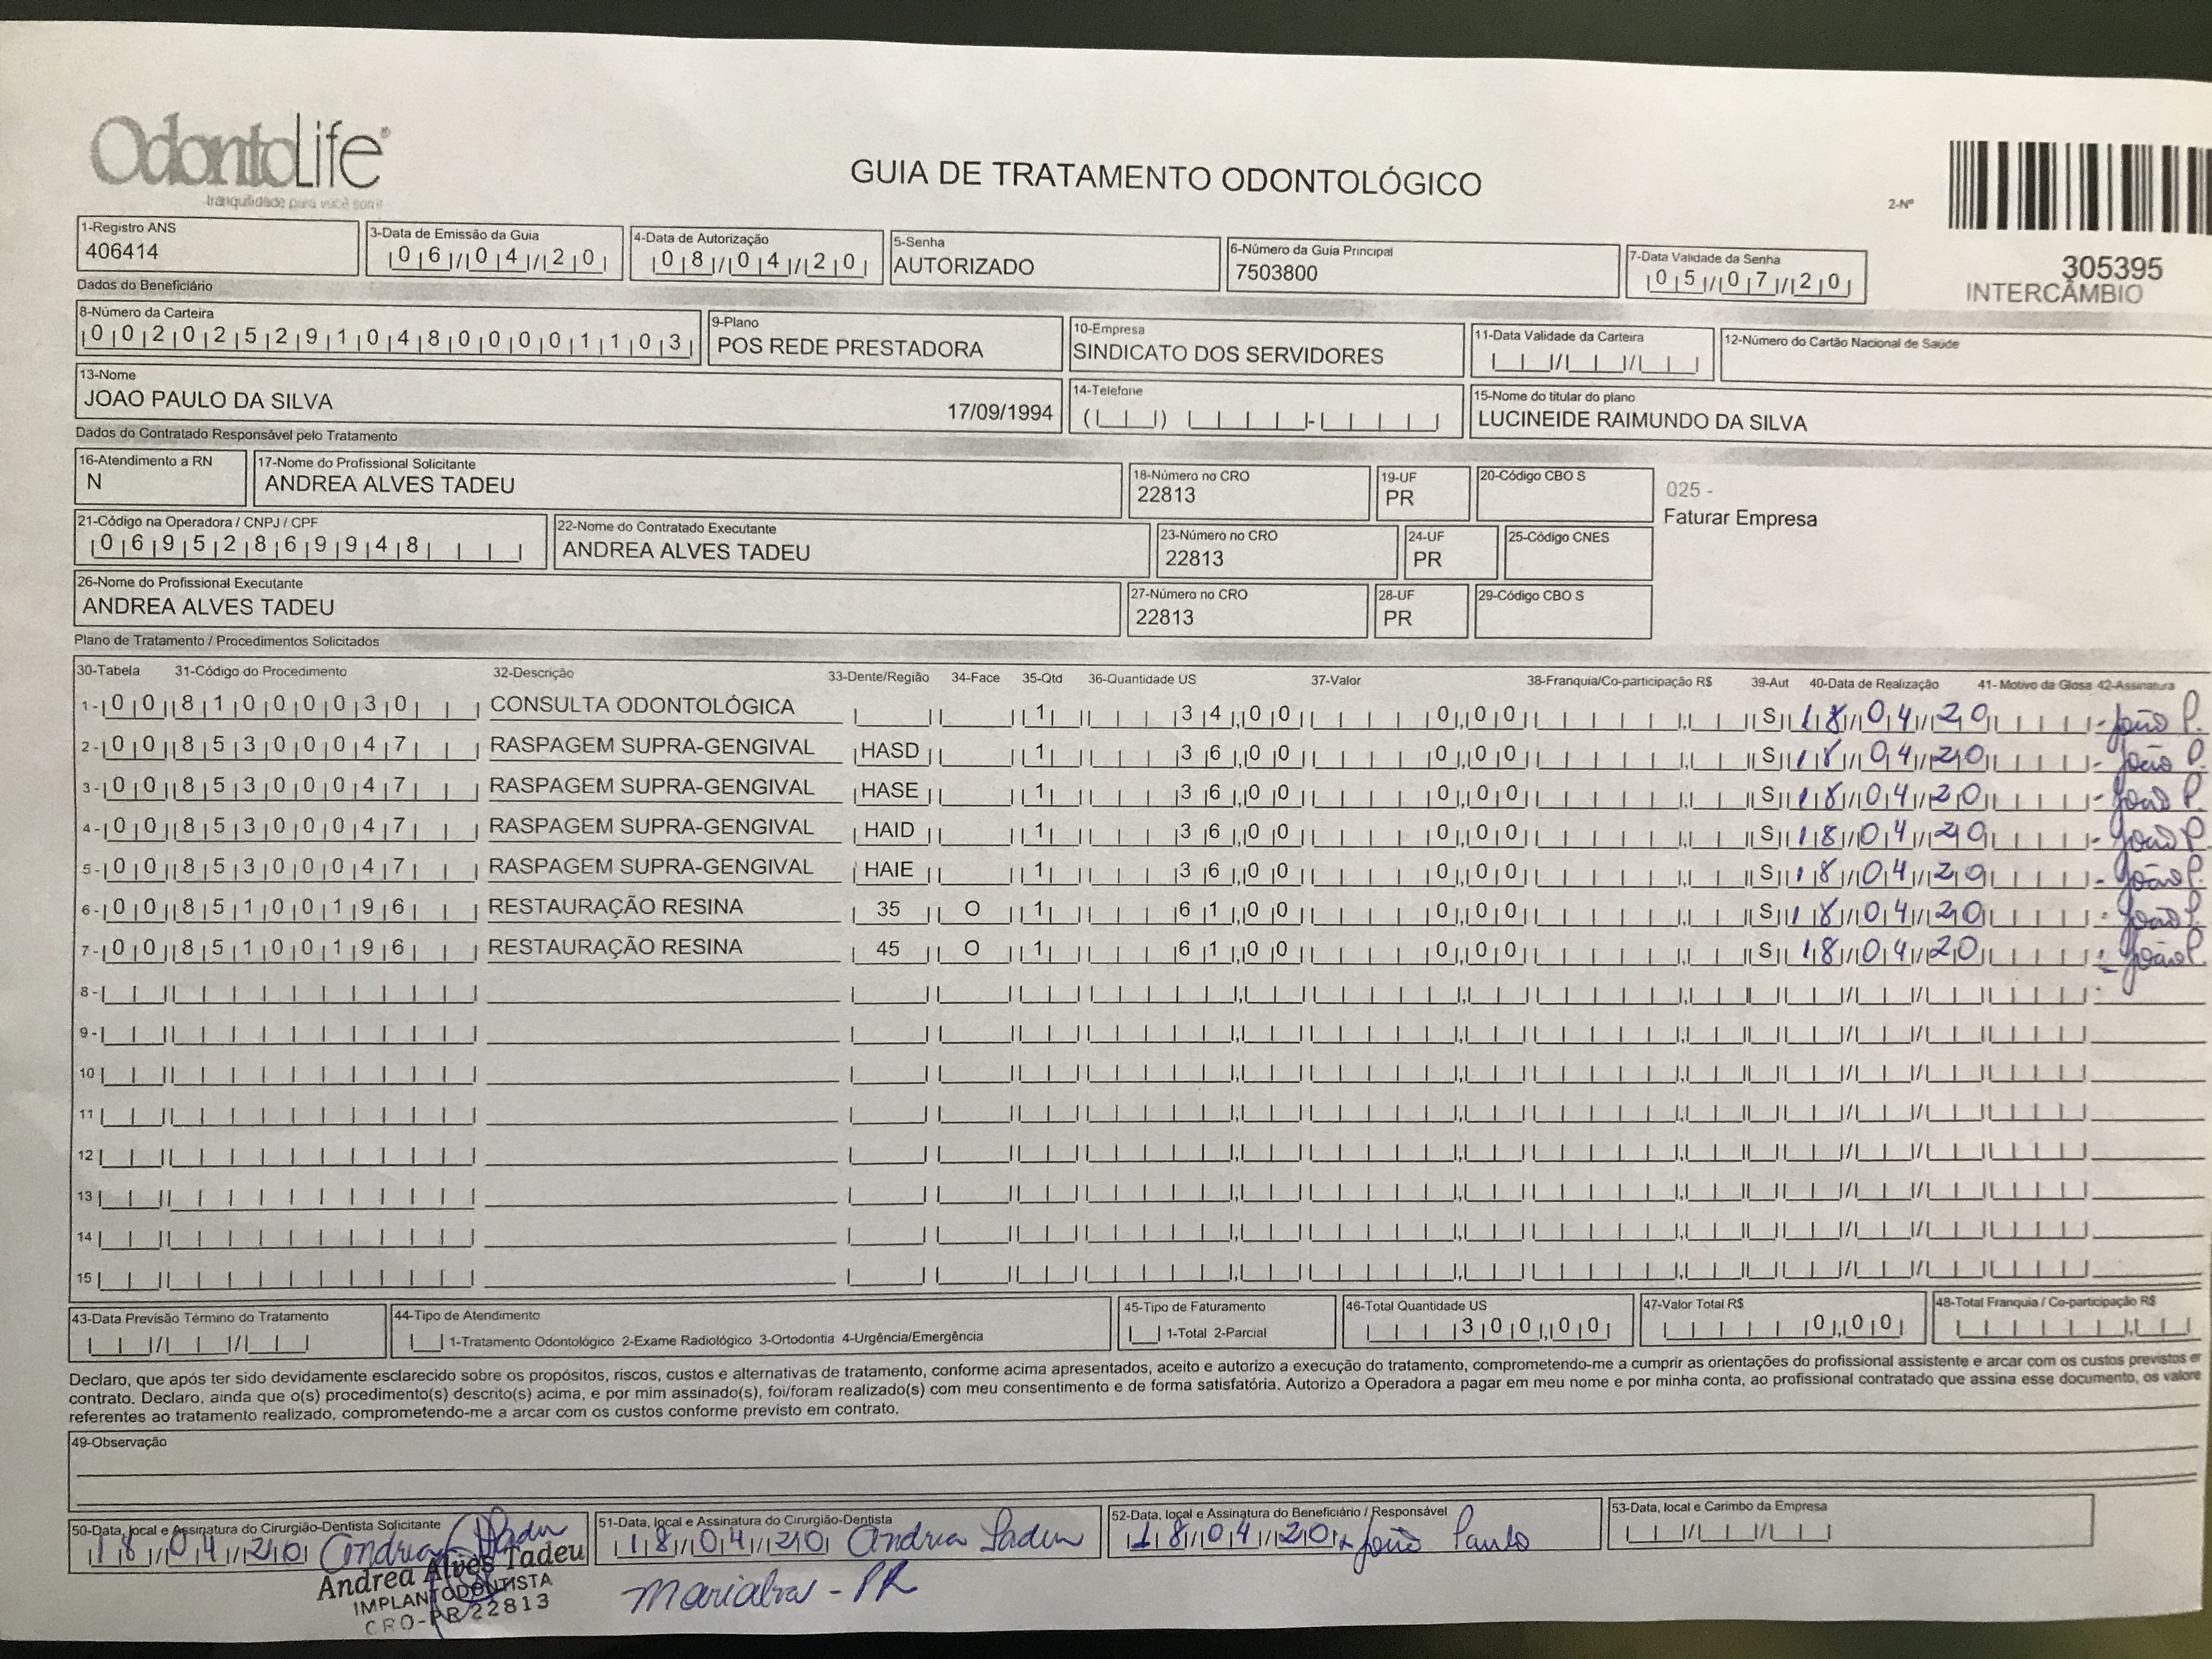 OdontoLife®
tranquilidade para você sorrir
GUIA DE TRATAMENTO ODONTOLÓGICO
2-Nº
305395
INTERCÂMBIO
1-Registro ANS
406414
3-Data de Emissão da Guia
06/04/20
4-Data de Autorização
08/04/20
5-Senha
AUTORIZADO
6-Número da Guia Principal
7503800
7-Data Validade da Senha
05/07/20
Dados do Beneficiário
8-Número da Carteira
00202529104800001103
9-Plano
POS REDE PRESTADORA
10-Empresa
SINDICATO DOS SERVIDORES
11-Data Validade da Carteira
12-Número do Cartão Nacional de Saúde
13-Nome
JOAO PAULO DA SILVA 17/09/1994
14-Telefone
15-Nome do titular do plano
LUCINEIDE RAIMUNDO DA SILVA
Dados do Contratado Responsável pelo Tratamento
16-Atendimento a RN
N
17-Nome do Profissional Solicitante
ANDREA ALVES TADEU
18-Número no CRO
22813
19-UF
PR
20-Código CBO S
025 -
Faturar Empresa
21-Código na Operadora / CNPJ / CPF
06952869948
22-Nome do Contratado Executante
ANDREA ALVES TADEU
23-Número no CRO
22813
24-UF
PR
25-Código CNES
26-Nome do Profissional Executante
ANDREA ALVES TADEU
27-Número no CRO
22813
28-UF
PR
29-Código CBO S
Plano de Tratamento / Procedimentos Solicitados
30-Tabela 31-Código do Procedimento 32-Descrição 33-Dente/Região 34-Face 35-Qtd 36-Quantidade US 37-Valor 38-Franquia/Co-participação R$ 39-Aut 40-Data de Realização 41- Motivo da Glosa 42-Assinatura
1- 00 81000030 CONSULTA ODONTOLÓGICA 1 34,00 0,00 S 18/04/20 João P.
2- 00 85300047 RASPAGEM SUPRA-GENGIVAL HASD 1 36,00 0,00 S 18/04/20 João P.
3- 00 85300047 RASPAGEM SUPRA-GENGIVAL HASE 1 36,00 0,00 S 18/04/20 João P.
4- 00 85300047 RASPAGEM SUPRA-GENGIVAL HAID 1 36,00 0,00 S 18/04/20 João P.
5- 00 85300047 RASPAGEM SUPRA-GENGIVAL HAIE 1 36,00 0,00 S 18/04/20 João P.
6- 00 85100196 RESTAURAÇÃO RESINA 35 O 1 61,00 0,00 S 18/04/20 João P.
7- 00 85100196 RESTAURAÇÃO RESINA 45 O 1 61,00 0,00 S 18/04/20 João P.
8-
9-
10
11
12
13
14
15
43-Data Previsão Término do Tratamento
44-Tipo de Atendimento
1-Tratamento Odontológico 2-Exame Radiológico 3-Ortodontia 4-Urgência/Emergência
45-Tipo de Faturamento
1-Total 2-Parcial
46-Total Quantidade US
300,00
47-Valor Total R$
0,00
48-Total Franquia / Co-participação R$
Declaro, que após ter sido devidamente esclarecido sobre os propósitos, riscos, custos e alternativas de tratamento, conforme acima apresentados, aceito e autorizo a execução do tratamento, comprometendo-me a cumprir as orientações do profissional assistente e arcar com os custos previstos e
contrato. Declaro, ainda que o(s) procedimento(s) descrito(s) acima, e por mim assinado(s), foi/foram realizado(s) com meu consentimento e de forma satisfatória. Autorizo a Operadora a pagar em meu nome e por minha conta, ao profissional contratado que assina esse documento, os valore
referentes ao tratamento realizado, comprometendo-me a arcar com os custos conforme previsto em contrato.
49-Observação
50-Data, local e Assinatura do Cirurgião-Dentista Solicitante
18/04/20 Andrea Tadeu
51-Data, local e Assinatura do Cirurgião-Dentista
18/04/20 Andrea Tadeu
52-Data, local e Assinatura do Beneficiário / Responsável
18/04/20 x João Paulo
53-Data, local e Carimbo da Empresa
Andrea Alves Tadeu
IMPLANTODONTISTA
CRO-PR 22813
Marialva - PR